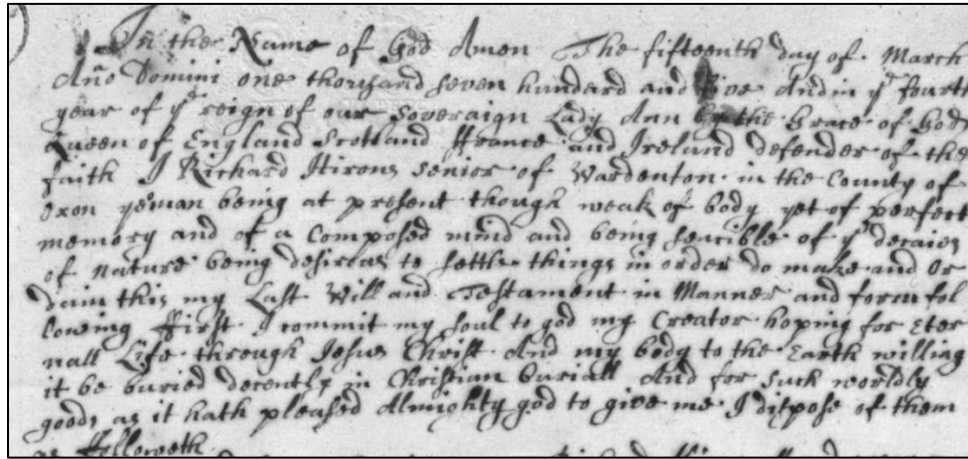 In the Name of God Amen The fifteenth day of March
Año Domini one thousand seven hundred and five And in yᵉ fourth
year of yᵉ reign of our Soveraign Lady Ann by the Grace of God
Queen of England Scotland ffrance and Ireland defender of the
faith I Richard Hirons senior of Wardenton in the County of
Oxon yeman being at present though weak of body yet of perfect
memory and of a Composed mind and being sencible of yᵉ decaies
of Nature being desirous to settle things in order do make and Or
dain this my Last Will and Testament in Manner and form fol
lowing ffirst I commit my soul to god my Creator hoping for Eter
nall Life through Jesus Christ And my body to the Earth willing
it be buried decently in Christian buriall And for such worldly
goods as it hath pleased Almighty god to give me I dispose of them
as ffolloweth